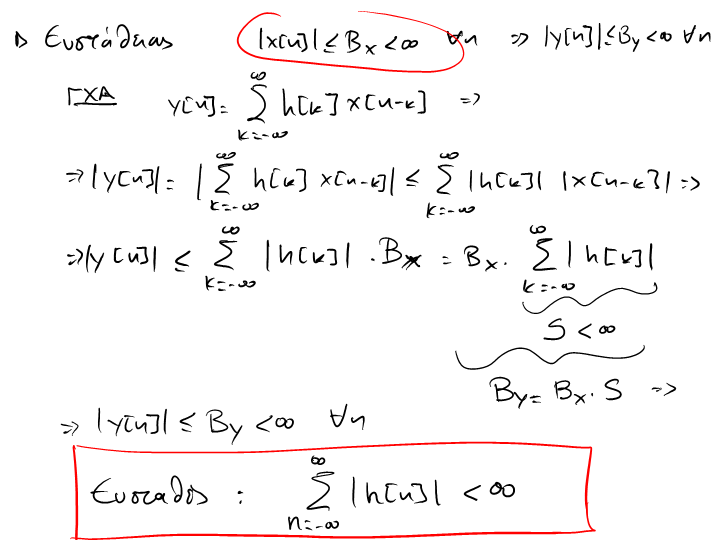 ▷ Ευστάθειας |x[n]| ≤ Bx < ∞ ∀n ⇒ |y[n]| ≤ By < ∞ ∀n
ΓΧΑ y[n] = ∑_{k=-∞}^{∞} h[k] x[n-k] ⇒
⇒ |y[n]| = |∑_{k=-∞}^{∞} h[k] x[n-k]| ≤ ∑_{k=-∞}^{∞} |h[k]| |x[n-k]| ⇒
⇒ |y[n]| ≤ ∑_{k=-∞}^{∞} |h[k]| · Bx = Bx · ∑_{k=-∞}^{∞} |h[k]|
S < ∞
By = Bx · S ⇒
⇒ |y[n]| ≤ By < ∞ ∀n
Ευσταθές : ∑_{n=-∞}^{∞} |h[n]| < ∞